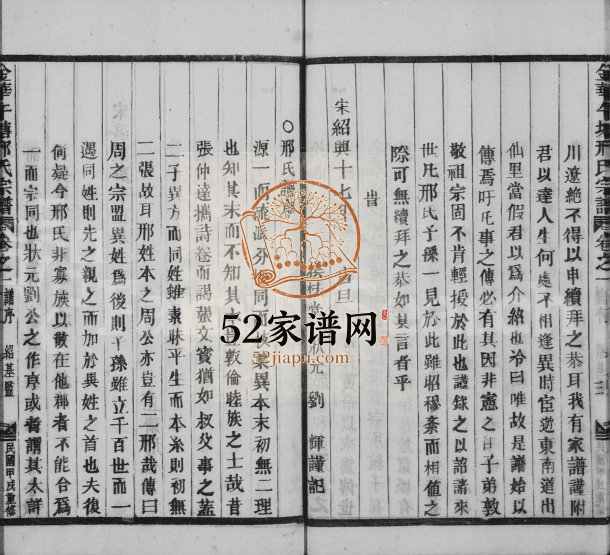 金華午塘邢氏宗譜 卷之一
川遼絶不得以申續拜之恭耳我有家譜謹附
君以達人生何處不相逢異時宦遊東南道出
仙里當假君以爲介紹也洽曰唯故是譜始以
傳焉吁氏事之傳必有其因非憲之曰子弟敦
敬祖宗固不肯輕授於此也謹錄之以詔諸來
世凡邢氏子孫一見於此雖昭穆紊而相値之
際可無續拜之恭如其言者乎
旹
宋紹興十七 旦 狀元 劉 輝謹記
○邢氏譜
源一而 派分 同 異本末初無二理
也知其末而不知其 敦倫睦族之士哉昔
張仲達攜詩卷而謁張文賓猶如叔父事之蓋
二子異方而同姓雖素昧平生而本系則初無
二張故目邢姓本之周公亦豈有二邢哉傳曰
周之宗盟異姓爲後則丫孫雖立千百世而一
遇同姓則先之親之而加於異姓之首也夫復
何疑今邢氏非寡族以散在他郡者不能合爲
一而宗同也狀元劉公之作序或者謂其太許
金華午塘邢氏宗譜 卷之一 譜序 紹基監 民國甲戌重修
52家谱网
52jiapu.com